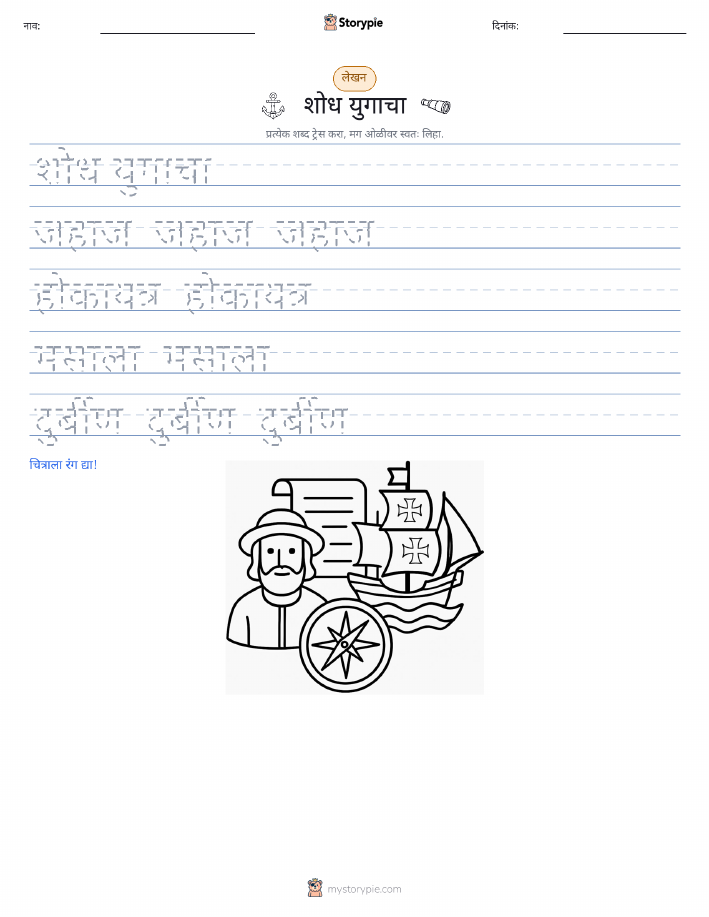 नाव:
Storypie
दिनांक:
लेखन
शोध युगाचा
प्रत्येक शब्द ट्रेस करा, मग ओळीवर स्वतः लिहा.
शोध युगाचा
जहाज जहाज जहाज
होकायत्र होकायत्र
मसाला मसाला
दुर्बीण दुर्बीण दुर्बीण
चित्राला रंग द्या!
mystorypie.com